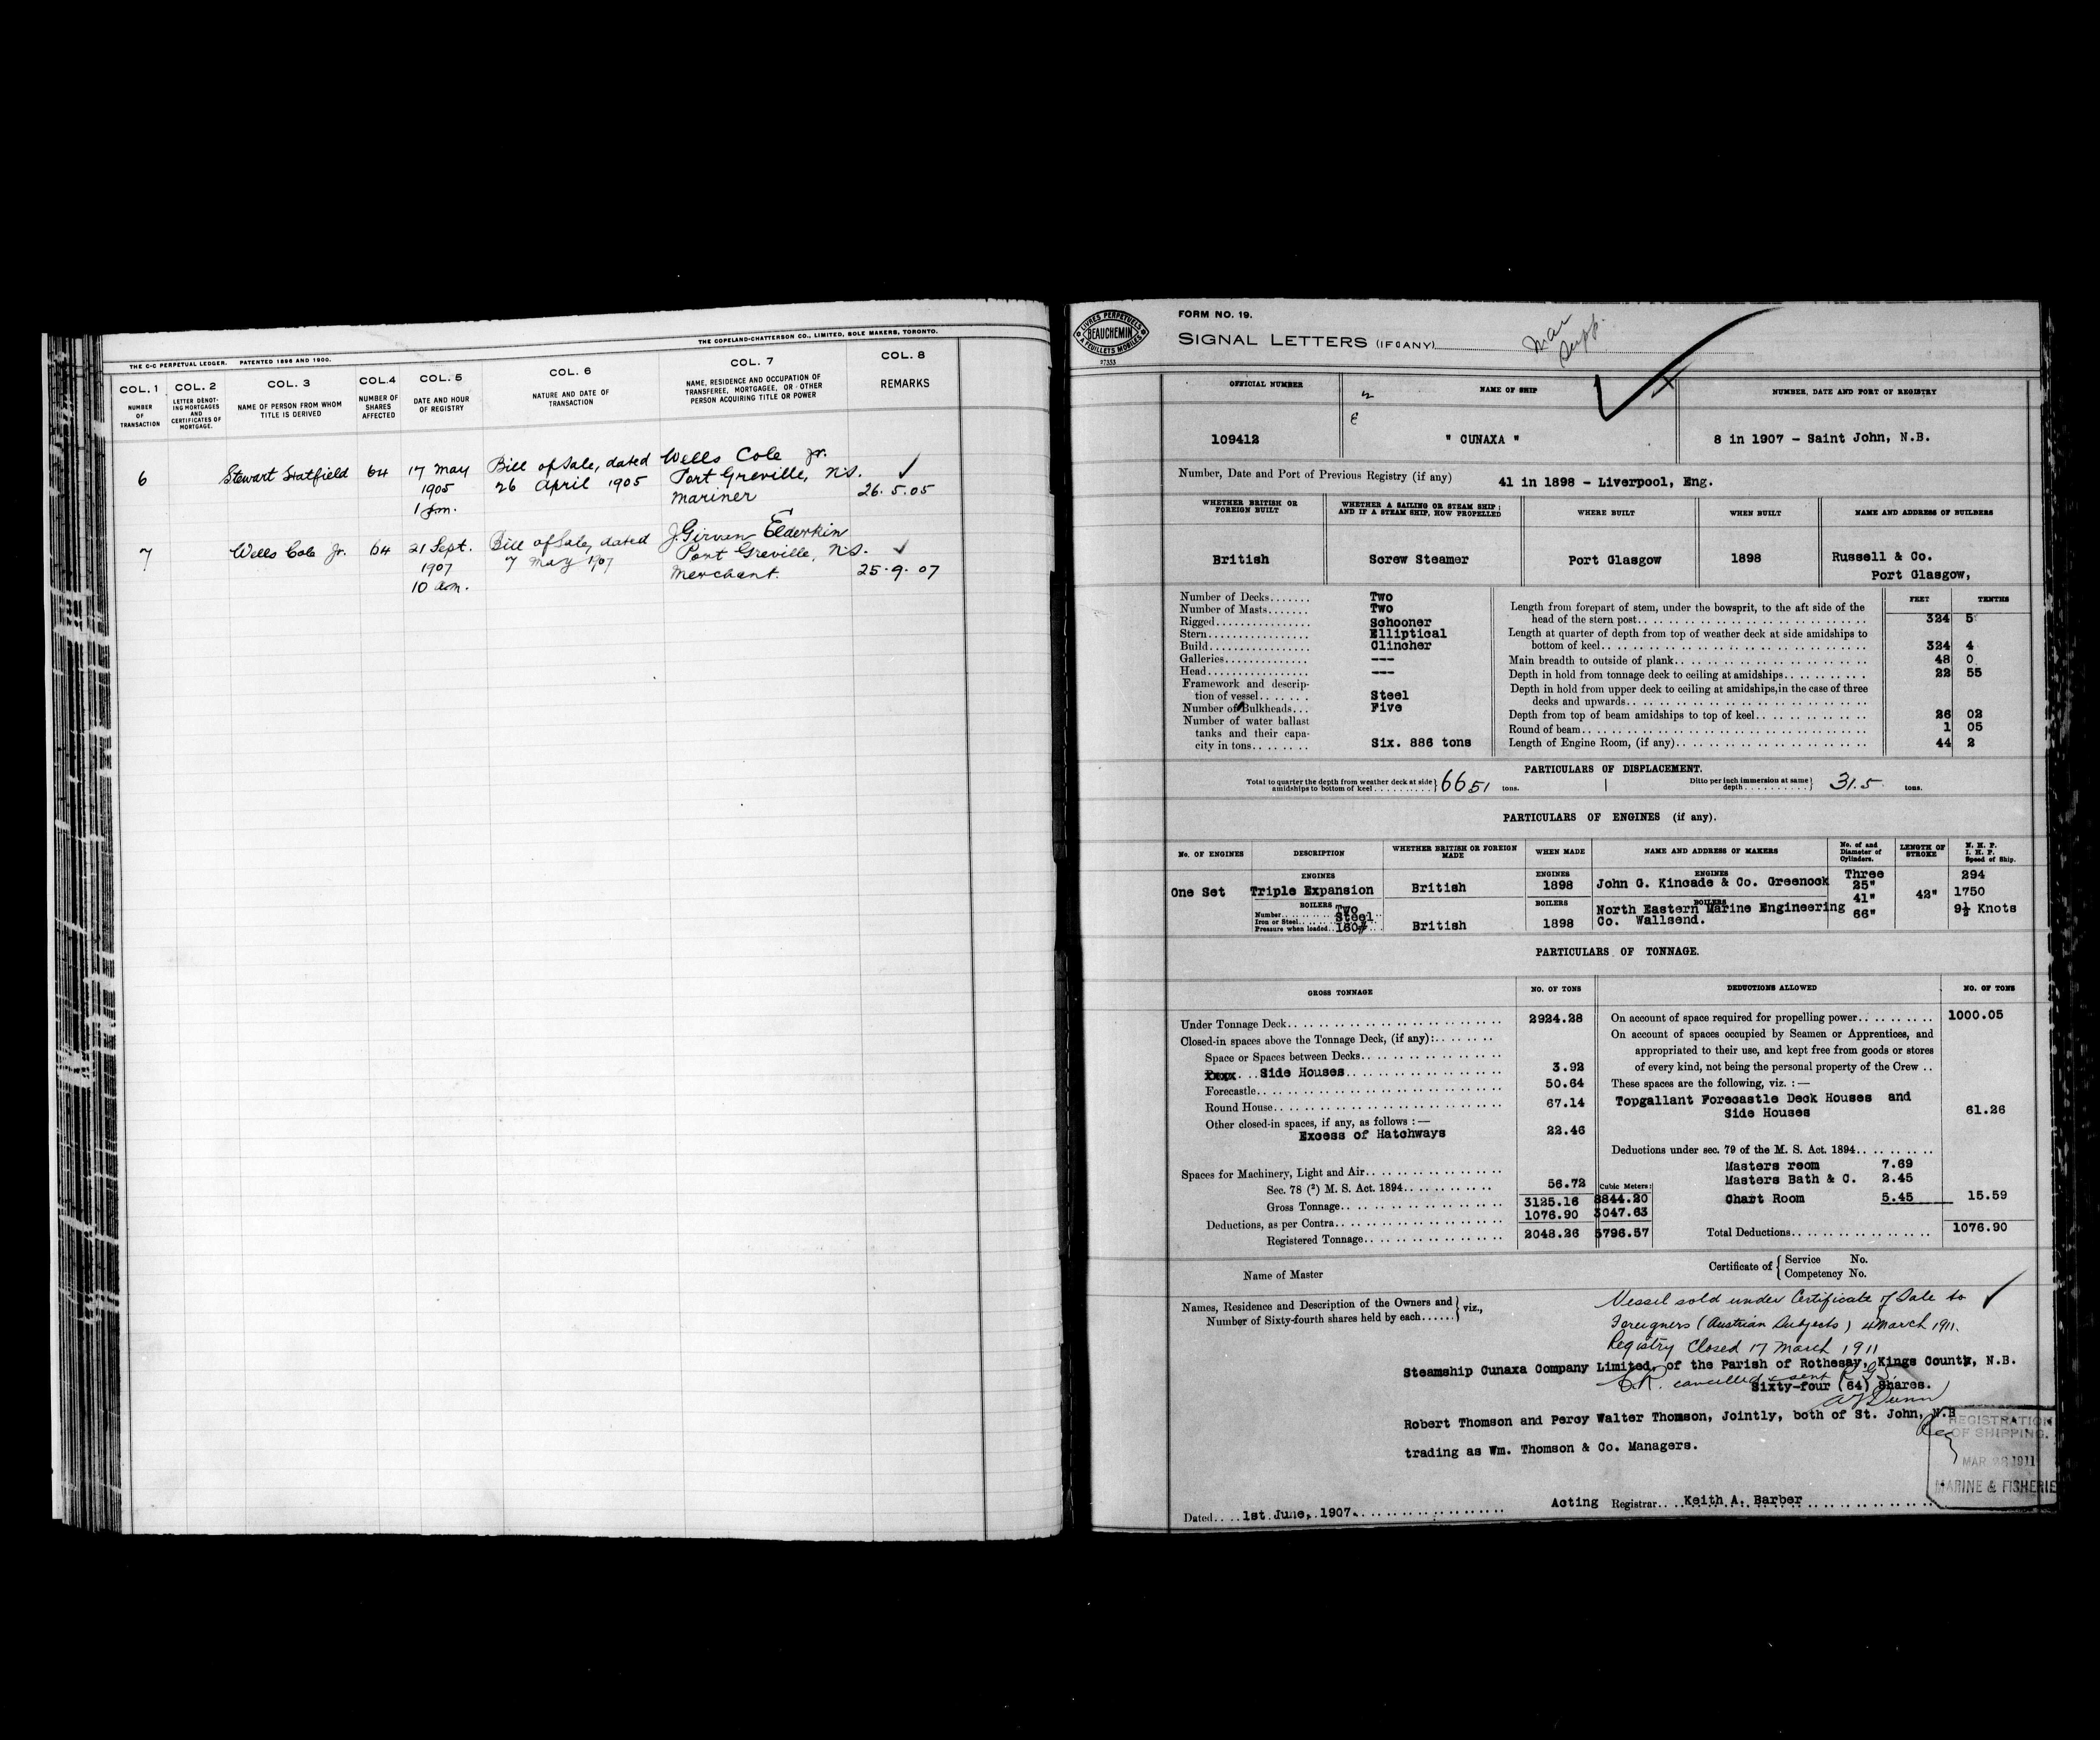 THE C-C PERPETUAL LEDGER. PATENTED 1896 AND 1900.
THE COPELAND-CHATTERSON CO., LIMITED, SOLE MAKERS, TORONTO.
COL. 1 COL. 2 COL. 3 COL. 4 COL. 5 COL. 6 COL. 7 COL. 8
NUMBER OF TRANSACTION
LETTER DENOTING MORTGAGES AND CERTIFICATES OF MORTGAGE.
NAME OF PERSON FROM WHOM TITLE IS DERIVED
NUMBER OF SHARES AFFECTED
DATE AND HOUR OF REGISTRY
NATURE AND DATE OF TRANSACTION
NAME, RESIDENCE AND OCCUPATION OF TRANSFEREE, MORTGAGEE, OR OTHER PERSON ACQUIRING TITLE OR POWER
REMARKS
6 Stewart Hatfield 64 17 May Bill of Sale, dated Wells Cole Jr.
1905 26 April 1905 Port Greville, N.S.
1 pm. Mariner 26.5.05
7 Wells Cole Jr. 64 21 Sept. Bill of Sale, dated J. Girven Elderkin
1907 7 May 1907 Port Greville, N.S.
10 am. Merchant. 25.9.07
LIVRES PERPETUELS
BEAUCHEMIN
& FEUILLETS MOBILES
27353
FORM NO. 19.
SIGNAL LETTERS (IF ANY)
Mar
Supp.
OFFICIAL NUMBER NAME OF SHIP NUMBER, DATE AND PORT OF REGISTRY
109412 " CUNAXA " 8 in 1907 - Saint John, N.B.
Number, Date and Port of Previous Registry (if any) 41 in 1898 - Liverpool, Eng.
WHETHER BRITISH OR FOREIGN BUILT
WHETHER A SAILING OR STEAM SHIP; AND IF A STEAM SHIP, HOW PROPELLED
WHERE BUILT
WHEN BUILT
NAME AND ADDRESS OF BUILDERS
British Screw Steamer Port Glasgow 1898 Russell & Co.
Port Glasgow,
Number of Decks....... Two
Number of Masts....... Two
Rigged................ Schooner
Stern................. Elliptical
Build................. Clincher
Galleries.............. ---
Head................. ---
Framework and description of vessel....... Steel
Number of Bulkheads... Five
Number of water ballast tanks and their capacity in tons........ Six. 886 tons
FEET TENTHS
Length from forepart of stem, under the bowsprit, to the aft side of the
head of the stern post.. 324 5
Length at quarter of depth from top of weather deck at side amidships to
bottom of keel.. 324 4
Main breadth to outside of plank.. 48 0
Depth in hold from tonnage deck to ceiling at amidships.. 22 55
Depth in hold from upper deck to ceiling at amidships, in the case of three
decks and upwards..
Depth from top of beam amidships to top of keel.. 26 02
Round of beam.. 1 05
Length of Engine Room, (if any).. 44 2
PARTICULARS OF DISPLACEMENT.
Total to quarter the depth from weather deck at side amidships to bottom of keel 6651 tons.
Ditto per inch immersion at same depth 31.5 tons.
PARTICULARS OF ENGINES (if any).
No. OF ENGINES DESCRIPTION WHETHER BRITISH OR FOREIGN MADE WHEN MADE NAME AND ADDRESS OF MAKERS No. of and Diameter of Cylinders. LENGTH OF STROKE N. H. P. I. H. P. Speed of Ship.
ENGINES ENGINES ENGINES
One Set Triple Expansion British 1898 John G. Kincade & Co. Greenock Three 25" 41" 66" 42" 294 1750 9½ Knots
BOILERS BOILERS BOILERS
Number.. Two
Iron or Steel.. Steel
Pressure when loaded.. 180#
British 1898 North Eastern Marine Engineering
Co. Wallsend.
PARTICULARS OF TONNAGE.
GROSS TONNAGE NO. OF TONS
Under Tonnage Deck.. 2924.28
Closed-in spaces above the Tonnage Deck, (if any):..
Space or Spaces between Decks..
Side Houses.. 3.92
Forecastle.. 50.64
Round House.. 67.14
Other closed-in spaces, if any, as follows :—
Excess of Hatchways 22.46
Spaces for Machinery, Light and Air..
Sec. 78 (²) M. S. Act. 1894.. 56.72 Cubic Meters:
Gross Tonnage.. 3125.16 8844.20
Deductions, as per Contra.. 1076.90 3047.63
Registered Tonnage.. 2048.26 5796.57
DEDUCTIONS ALLOWED NO. OF TONS
On account of space required for propelling power.. 1000.05
On account of spaces occupied by Seamen or Apprentices, and
appropriated to their use, and kept free from goods or stores
of every kind, not being the personal property of the Crew ..
These spaces are the following, viz. : —
Topgallant Forecastle Deck Houses and
Side Houses 61.26
Deductions under sec. 79 of the M. S. Act. 1894..
Masters room 7.69
Masters Bath & C. 2.45
Chart Room 5.45 15.59
Total Deductions.. 1076.90
Name of Master
Certificate of { Service No.
Competency No.
Names, Residence and Description of the Owners and
Number of Sixty-fourth shares held by each...... } viz.,
Vessel sold under Certificate of Sale to
Foreigners (Austrian Subjects) 4 March 1911.
Registry Closed 17 March 1911
Steamship Cunaxa Company Limited, of the Parish of Rothesay, Kings County, N.B.
C.R. cancelled & sent R.G.S.
Sixty-four (64) Shares.
Robert Thomson and Percy Walter Thomson, Jointly, both of St. John, N.B
trading as Wm. Thomson & Co. Managers.
REGISTRATION
OF SHIPPING.
MAR 28 1911
MARINE & FISHERIE
Acting Registrar.. Keith A. Barber
Dated.... 1st June, 1907.